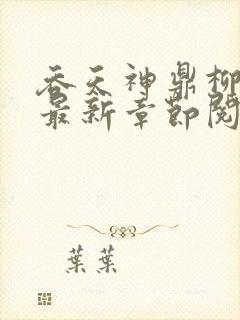 吞天神鼎柳
最新章節閱
葉葉